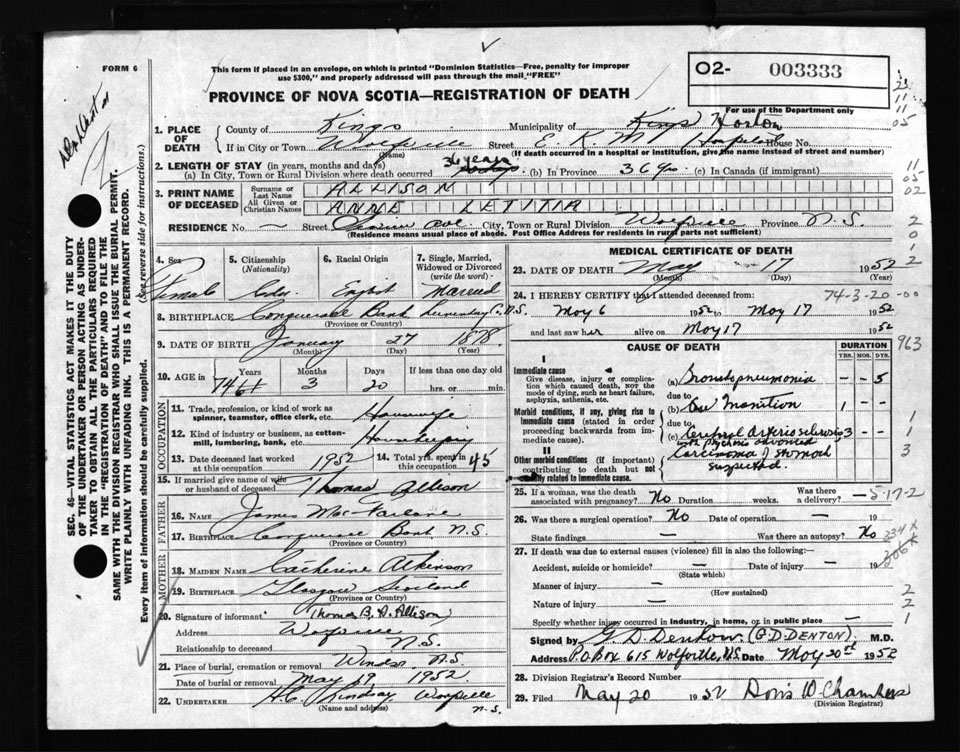 FORM 6
This form if placed in an envelope, on which is printed "Dominion Statistics—Free, penalty for improper
use $300," and properly addressed will pass through the mail "FREE"
O2- 003333
PROVINCE OF NOVA SCOTIA—REGISTRATION OF DEATH
For use of the Department only
1. PLACE OF DEATH
County of Kings Municipality of Kings Horton
If in City or Town Wolfville Street House No.
(Name) (If death occurred in a hospital or institution, give the name instead of street and number)
2. LENGTH OF STAY (in years, months and days)
(a) In City, Town or Rural Division where death occurred 36 years (b) In Province 36 yrs (c) In Canada (if immigrant)
3. PRINT NAME OF DECEASED
Surname or Last Name ALLISON
All Given or Christian Names ANNE LETITIA
RESIDENCE No. — Street Ave City, Town or Rural Division Wolfville Province N.S.
(Residence means usual place of abode. Post Office Address for residents in rural parts not sufficient)
4. Sex Female
5. Citizenship (Nationality)
6. Racial Origin English
7. Single, Married, Widowed or Divorced (write the word) Married
8. BIRTHPLACE Conquerall Bank Lunenburg Co. N.S.
(Province or Country)
9. DATE OF BIRTH January 27 1878
(Month) (Day) (Year)
10. AGE in Years 74 Months 3 Days 20 If less than one day old
hrs. or min.
OCCUPATION
11. Trade, profession, or kind of work as spinner, teamster, office clerk, etc. Housewife
12. Kind of industry or business, as cotton-mill, lumbering, bank, etc. Housekeeping
13. Date deceased last worked at this occupation 1952
14. Total yrs. spent in this occupation 45
15. If married give name of wife or husband of deceased Thomas Allison
FATHER
16. NAME James MacFarlane
17. BIRTHPLACE Conquerall Bank N.S.
(Province or Country)
MOTHER
18. MAIDEN NAME Catherine Atkinson
19. BIRTHPLACE Glasgow Scotland
(Province or Country)
20. Signature of informant Thomas B. A. Allison
Address Wolfville
Relationship to deceased N.S.
21. Place of burial, cremation or removal Windsor N.S.
Date of burial or removal May 19, 1952
22. UNDERTAKER H.C. Lindsay Wolfville
(Name and address) N.S.
MEDICAL CERTIFICATE OF DEATH
23. DATE OF DEATH May 17 1952
(Month) (Day) (Year)
24. I HEREBY CERTIFY that I attended deceased from: 74-3-20-00
May 6 1952 to May 17 1952
and last saw her alive on May 17 1952
CAUSE OF DEATH
DURATION
YRS. MOS. DYS.
963
I
Immediate cause
Give disease, injury or complication which caused death, NOT the mode of dying, such as heart failure, asphyxia, asthenia, etc.
(a) Bronchopneumonia - - 5
due to
Morbid conditions, if any, giving rise to immediate cause (stated in order proceeding backwards from immediate cause).
(b) Inanition 1 - -
due to
(c) Cerebral arteriosclerosis 3 - -
with psychosis advanced
II
Other morbid conditions (if important) contributing to death but not causally related to immediate cause.
Carcinoma of stomach
suspected.
25. If a woman, was the death associated with pregnancy? No Duration weeks. Was there a delivery? — 5-17-2
26. Was there a surgical operation? No Date of operation — 19
State findings — Was there an autopsy? No
27. If death was due to external causes (violence) fill in also the following:—
Accident, suicide or homicide? — Date of injury — 19
(State which)
Manner of injury —
(How sustained)
Nature of injury —
Specify whether injury occurred in industry, in home, or in public place —
Signed by G. D. Denton (G.D. DENTON) M.D.
Address P.O. Box 615 Wolfville, N.S. Date May 20th 1952
28. Division Registrar's Record Number
29. Filed May 20 1952 Doris W Chambers
(Division Registrar)
SEC. 46—VITAL STATISTICS ACT MAKES IT THE DUTY
OF THE UNDERTAKER OR PERSON ACTING AS UNDER-
TAKER TO OBTAIN ALL THE PARTICULARS REQUIRED
IN THE "REGISTRATION OF DEATH" AND TO FILE THE
SAME WITH THE DIVISION REGISTRAR WHO SHALL ISSUE THE BURIAL PERMIT.
WRITE PLAINLY WITH UNFADING INK. THIS IS A PERMANENT RECORD.
Every item of information should be carefully supplied.
(See reverse side for instructions.)